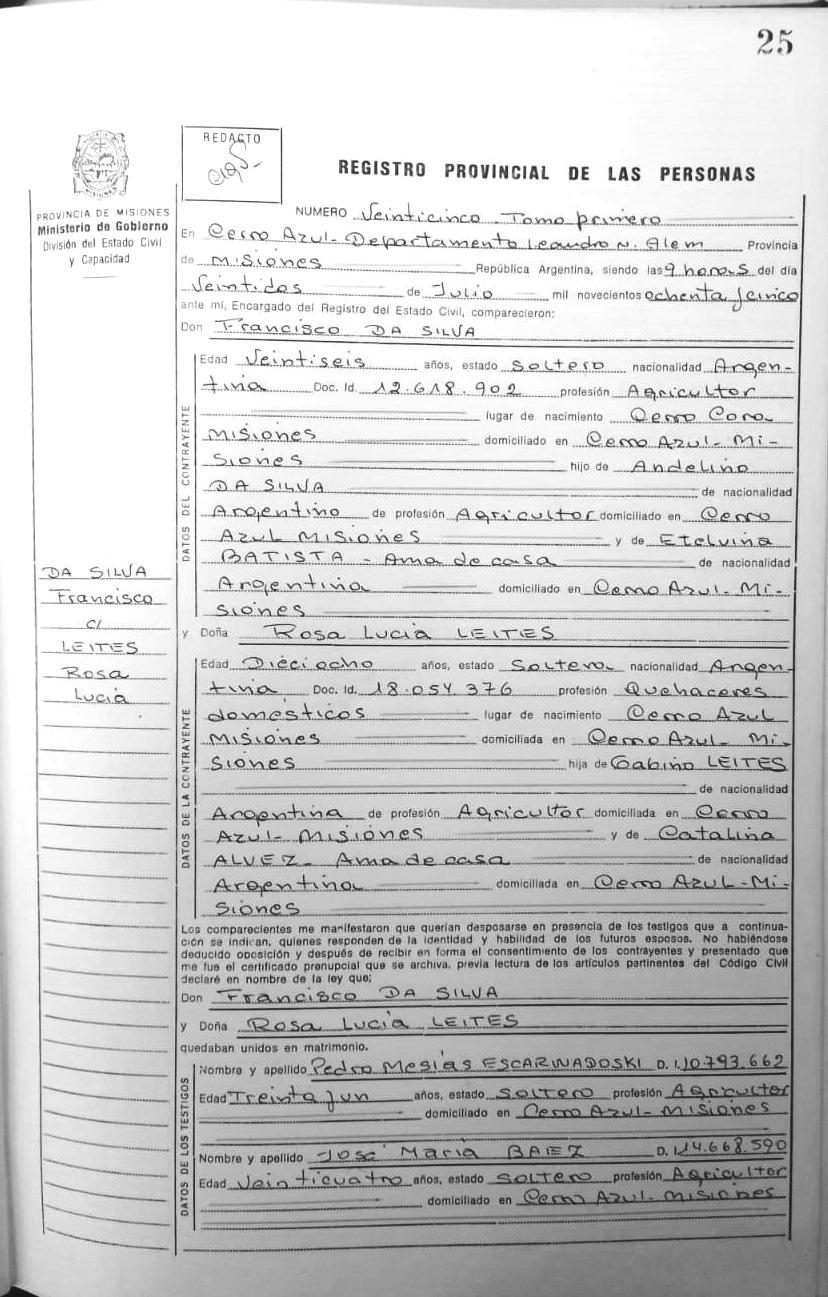 25
REDACTO
REGISTRO PROVINCIAL DE LAS PERSONAS
PROVINCIA DE MISIONES
Ministerio de Gobierno
División del Estado Civil
y Capacidad
NUMERO Veinticinco Tomo primero
En Cerro Azul - Departamento Leandro N. Alem Provincia
de Misiones República Argentina, siendo las 9 horas del día
Veintidos de Julio mil novecientos ochenta y cinco
ante mí, Encargado del Registro del Estado Civil, comparecieron:
Don Francisco DA SILVA
DATOS DEL CONTRAYENTE
Edad Veintiseis años, estado Soltero nacionalidad Argen-
tina Doc. Id. 12.618.902 profesión Agricultor
lugar de nacimiento Cerro Cora
Misiones domiciliado en Cerro Azul - Mi-
siones hijo de Andelino
DA SILVA de nacionalidad
Argentino de profesión Agricultor domiciliado en Cerro
Azul Misiones y de Etelvina
BATISTA - Ama de casa de nacionalidad
Argentina domiciliado en Cerro Azul - Mi-
siones
DA SILVA
Francisco
c/
LEITES
Rosa
Lucia
y Doña Rosa Lucia LEITES
DATOS DE LA CONTRAYENTE
Edad Dieciocho años, estado Soltera nacionalidad Argen
tina Doc. Id. 18.054.376 profesión Quehaceres
domésticos lugar de nacimiento Cerro Azul
Misiones domiciliada en Cerro Azul - Mi-
siones hija de Gabino LEITES
de nacionalidad
Argentina de profesión Agricultor domiciliada en Cerro
Azul - Misiones y de Catalina
ALVEZ - Ama de casa de nacionalidad
Argentina domiciliada en Cerro Azul - Mi-
siones
Los comparecientes me manifestaron que querían desposarse en presencia de los testigos que a continua-
ción se indican, quienes responden de la identidad y habilidad de los futuros esposos. No habiéndose
deducido oposición y después de recibir en forma el consentimiento de los contrayentes y presentado que
me fue el certificado prenupcial que se archiva, previa lectura de los artículos pertinentes del Código Civil
declaré en nombre de la ley que;
Don Francisco DA SILVA
y Doña Rosa Lucia LEITES
quedaban unidos en matrimonio.
DATOS DE LOS TESTIGOS
Nombre y apellido Pedro Mesías ESCARWADOSKI D. I. 10.793.662
Edad Treinta y un años, estado Soltero profesión Agricultor
domiciliado en Cerro Azul - Misiones
Nombre y apellido José María BAEZ D. I. 14.668.590
Edad Veinticuatro años, estado Soltero profesión Agricultor
domiciliado en Cerro Azul - Misiones